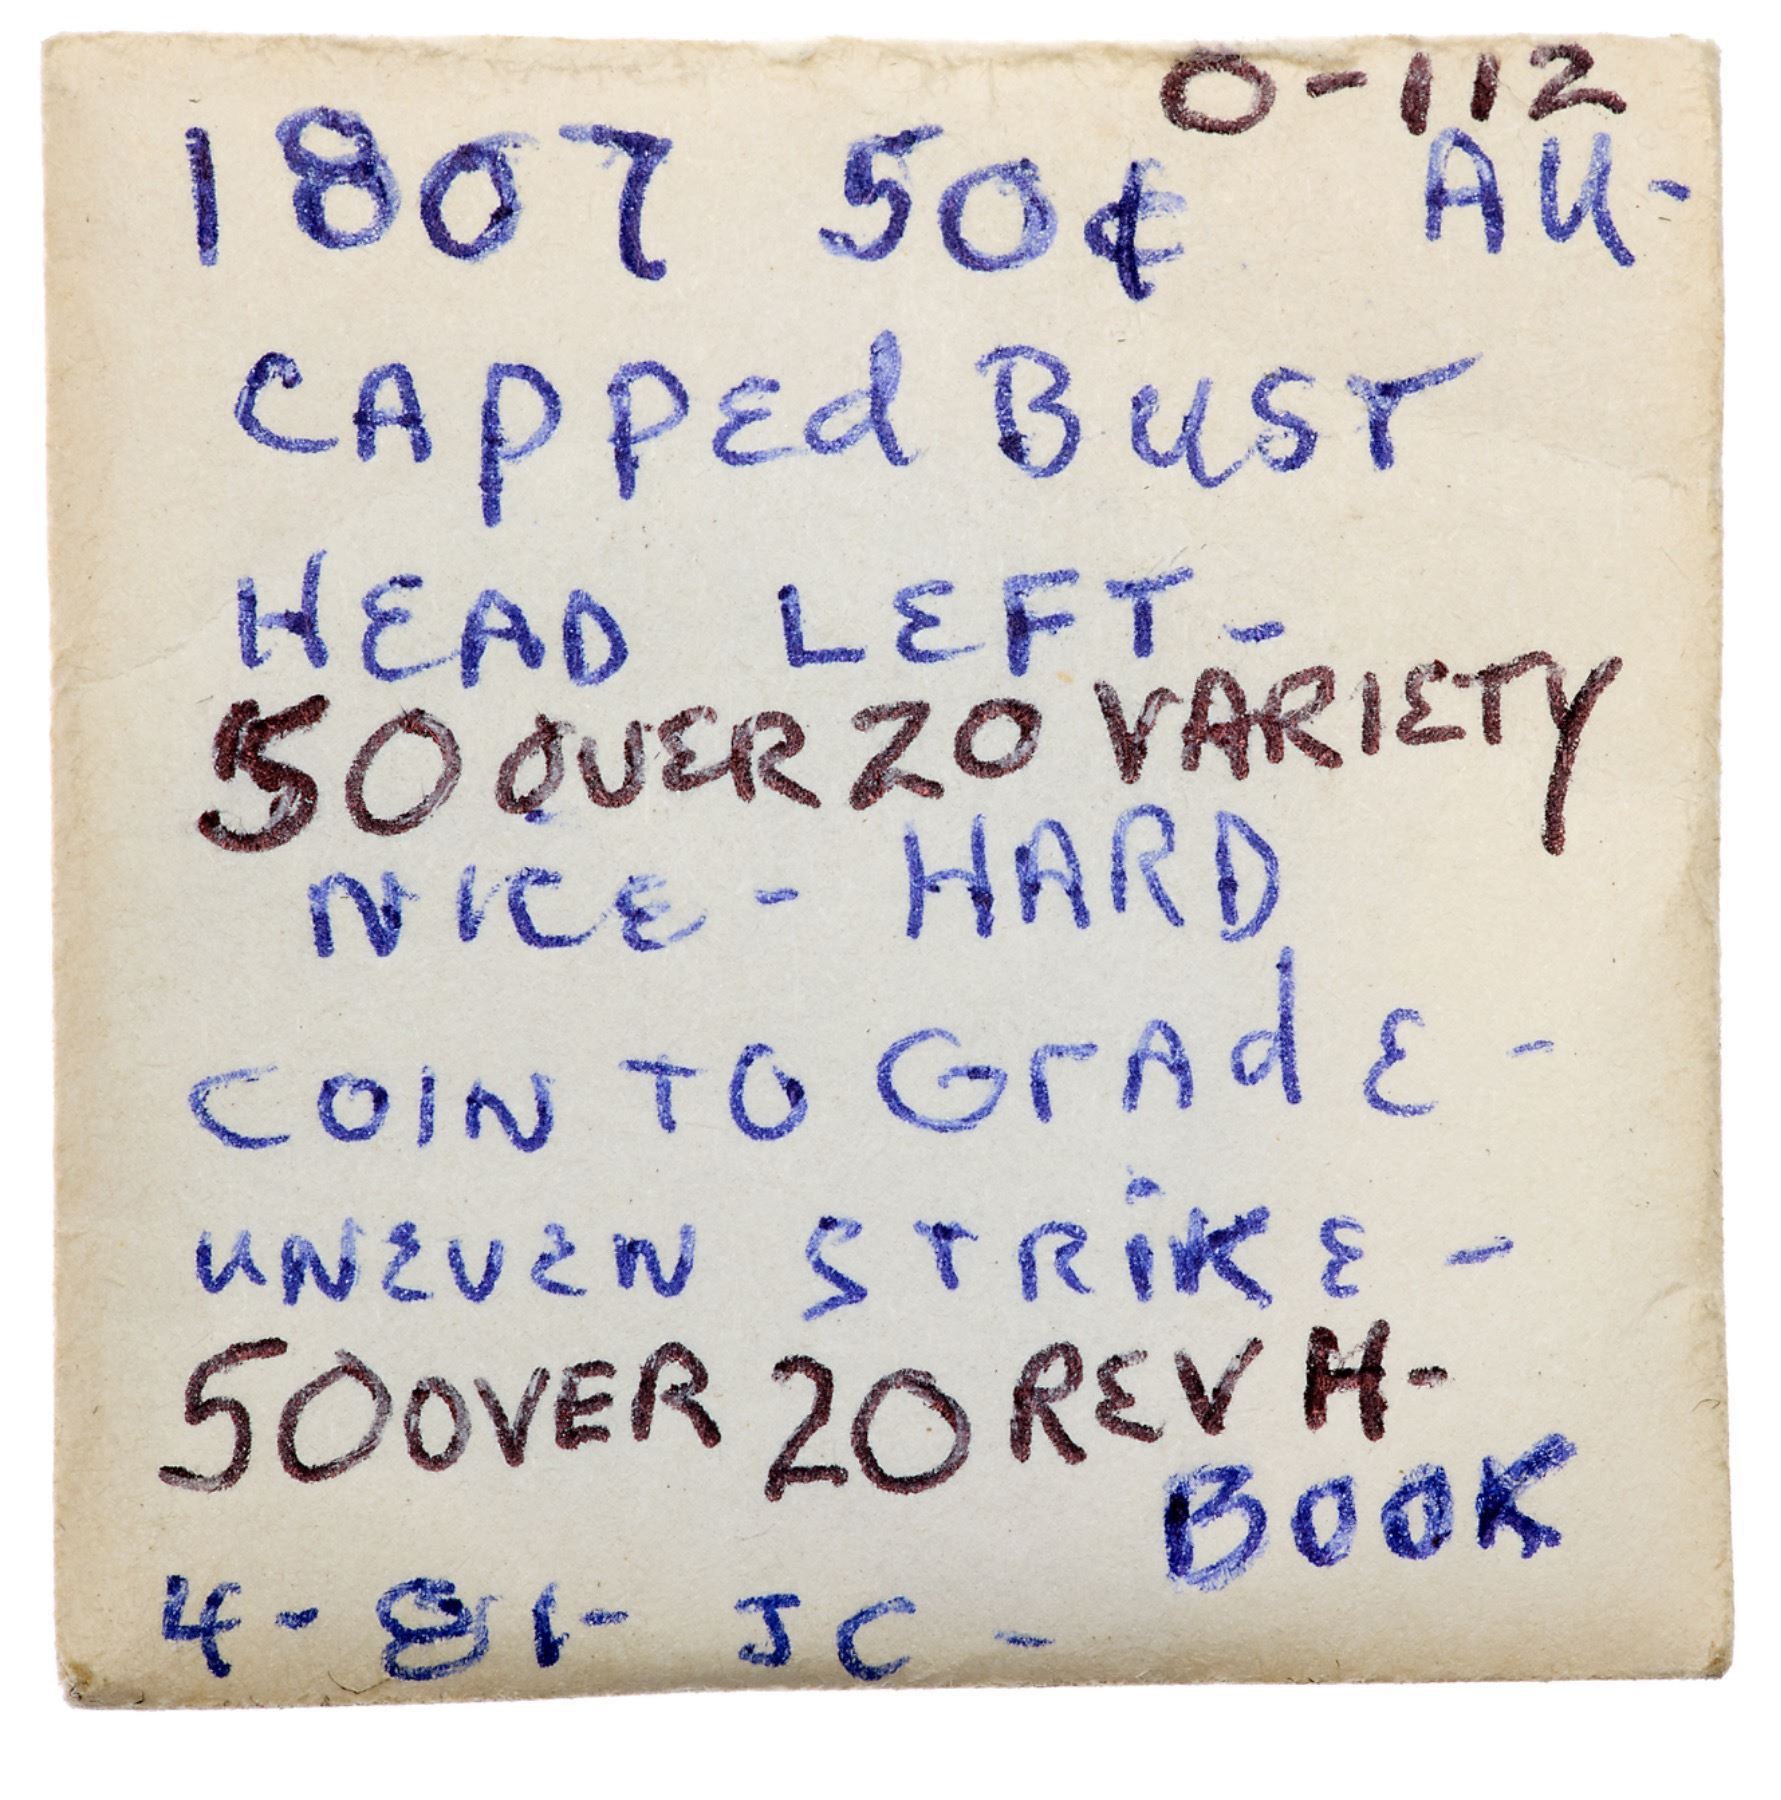 O-112
1807 50¢ AU-
CAppEd BUST
HEAD LEFT-
50 OVER 20 VARIETY
NICE - HARD
COIN TO GrAdE -
UNEVEN STRiKE -
50 OVER 20 REV H-
BOOK
4-81- JC -